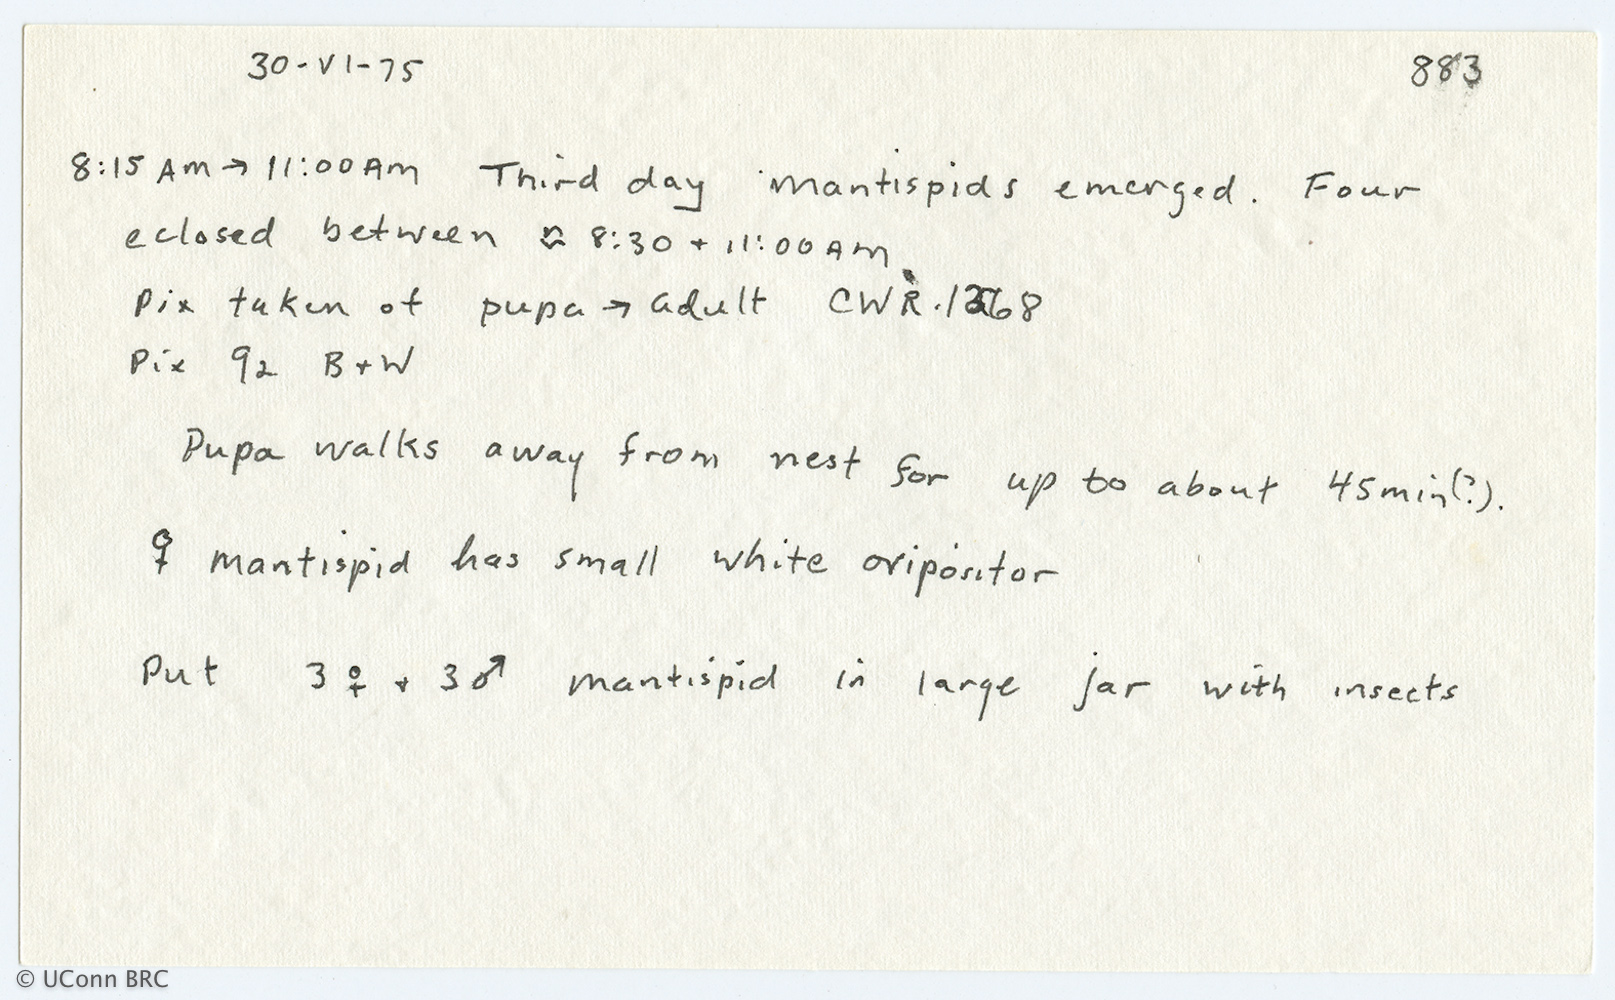 30-VI-75 883
8:15 Am → 11:00 Am Third day mantispids emerged. Four
eclosed between ≈ 8:30 + 11:00 AM
Pix taken of pupa → adult CWR.
Pix 92 B+W
Pupa walks away from nest for up to about 45min(?).
♀ mantispid has small white ovipositor
Put 3♀ + 3♂ mantispid in large jar with insects
© UConn BRC